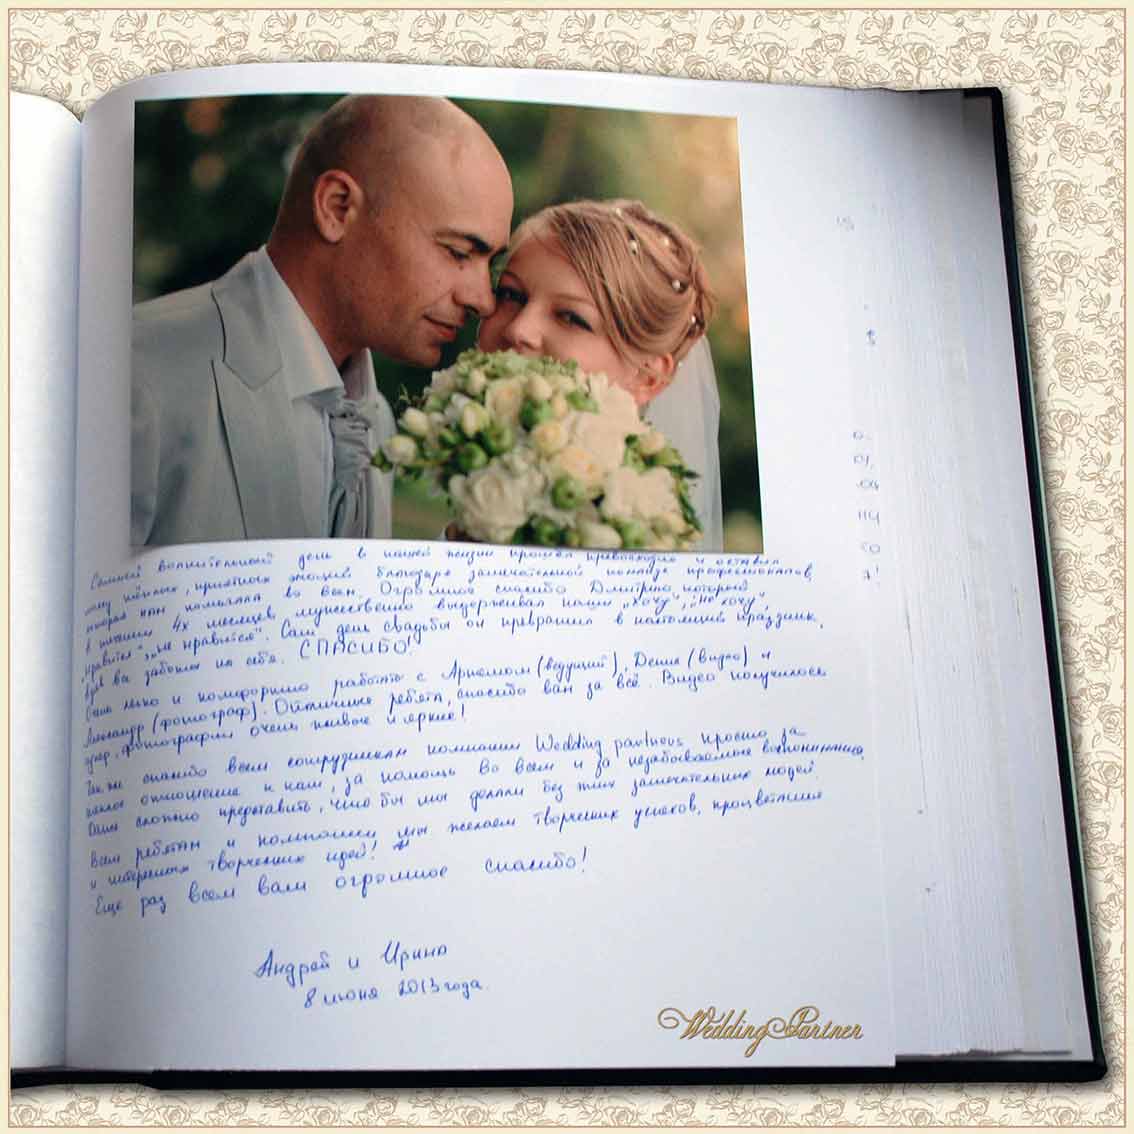 Самый волнительный день в нашей жизни прошел превосходно и оставил
приятных эмоций благодаря замечательной команде профессионалов,
которая нам помогала во всем. Огромное спасибо Дмитрию, который
в течении 4х месяцев мужественно выдерживал наши „хочу", „не хочу",
„нравится", „не нравится". Сам день свадьбы он превратил в настоящий праздник,
взяв все заботы на себя. СПАСИБО!
Было легко и комфортно работать с Артемом (ведущий), Денис (видео) и
Александр (фотограф). Отличные ребята, спасибо вам за всё. Видео получилось
супер, фотографии очень живые и яркие!
Так же спасибо всем сотрудникам компании Wedding partners просто за
отношение к нам, за помощь во всем и за незабываемые воспоминания.
Даже сложно представить, что бы мы делали без этих замечательных людей.
Всем ребятам и компании мы желаем творческих успехов, процветания
и интересных творческих идей!
Еще раз всем вам огромное спасибо!
Андрей и Ирина
8 июня 2013 года.
WeddingPartner